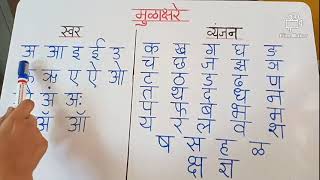 मुळाक्षरे
स्वर
अ आ इ ई उ
ऋ ए ऐ ओ
अं अः
ॲ ऑ
व्यंजन
क ख ग घ ङ
च छ ज झ ञ
ट ठ ड ढ ण
त थ द ध न
प फ ब भ म
य र ल व श
ष स ह ळ
क्ष ज्ञ